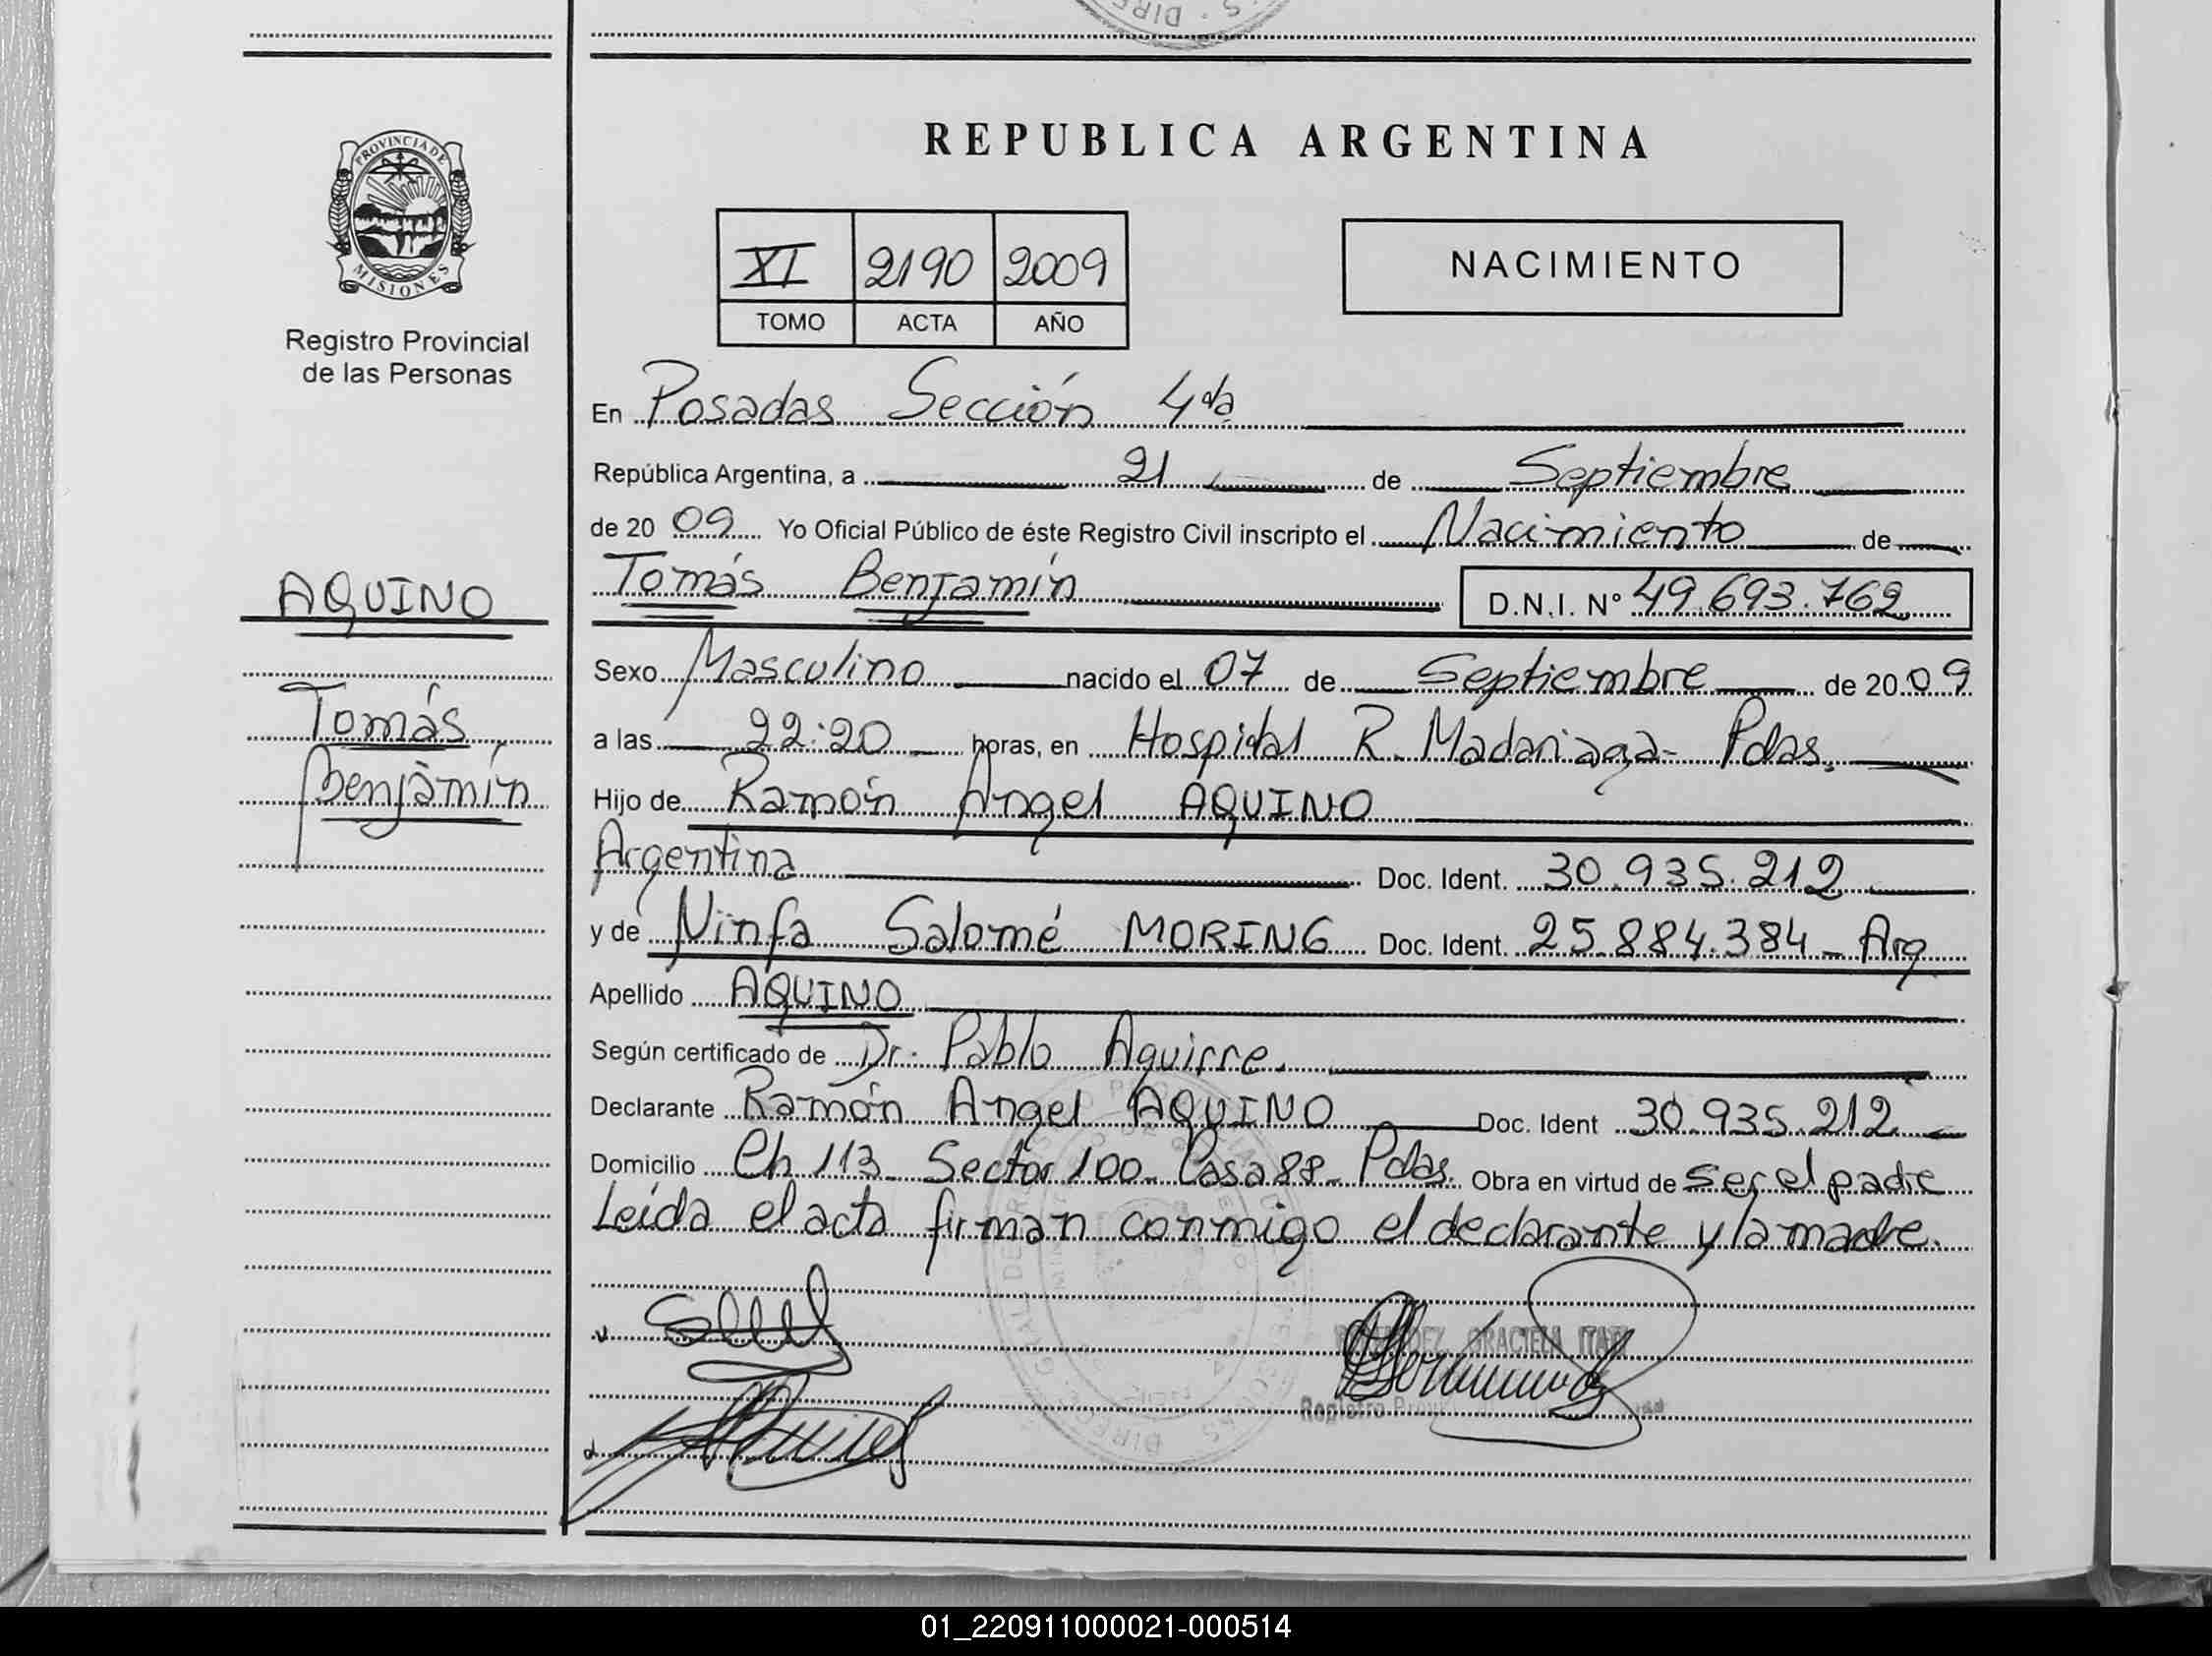 REPUBLICA ARGENTINA
PROVINCIA DE
MISIONES
Registro Provincial
de las Personas
XI 2190 2009
TOMO ACTA AÑO
NACIMIENTO
En Posadas Sección 4da
República Argentina, a 21 de Septiembre
de 2009 Yo Oficial Público de éste Registro Civil inscripto el Nacimiento de
Tomás Benjamín D.N.I. N° 49.693.762
AQUINO
Tomás
Benjamín
Sexo Masculino nacido el 07 de Septiembre de 2009
a las 22:20 horas, en Hospital R. Madariaga- Pdas.
Hijo de Ramón Angel AQUINO
Argentina Doc. Ident. 30.935.212
y de Ninfa Salomé MORING Doc. Ident. 25.884.384 - Arg
Apellido AQUINO
Según certificado de Dr. Pablo Aguirre.
Declarante Ramón Angel AQUINO Doc. Ident 30.935.212
Domicilio Ch 113- Sector 100- Casa 88- Pdas. Obra en virtud de ser el padre
Leída el acta firman conmigo el declarante y la madre.
GRACIELA ITATI
Registro
01_220911000021-000514